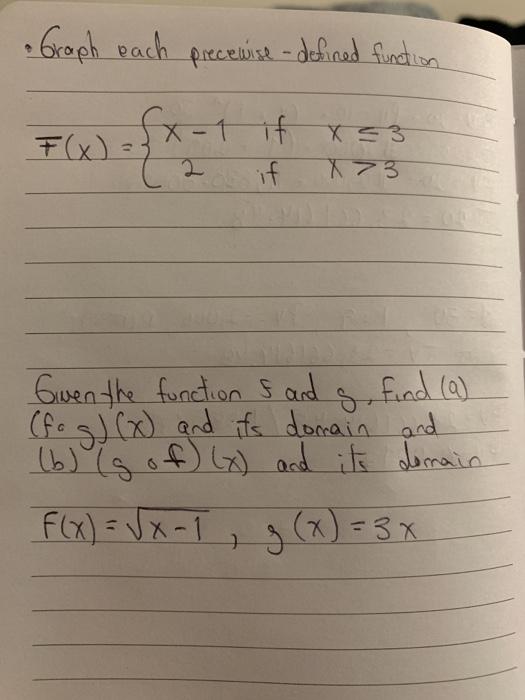 • Graph each precewise-defined function
F(x) = { x - 1 if x ≤ 3
2 if x > 3
Given the function f and g, find (a)
(f∘g)(x) and its domain and
(b) (g∘f)(x) and its domain
F(x) = √x-1 , g(x) = 3x